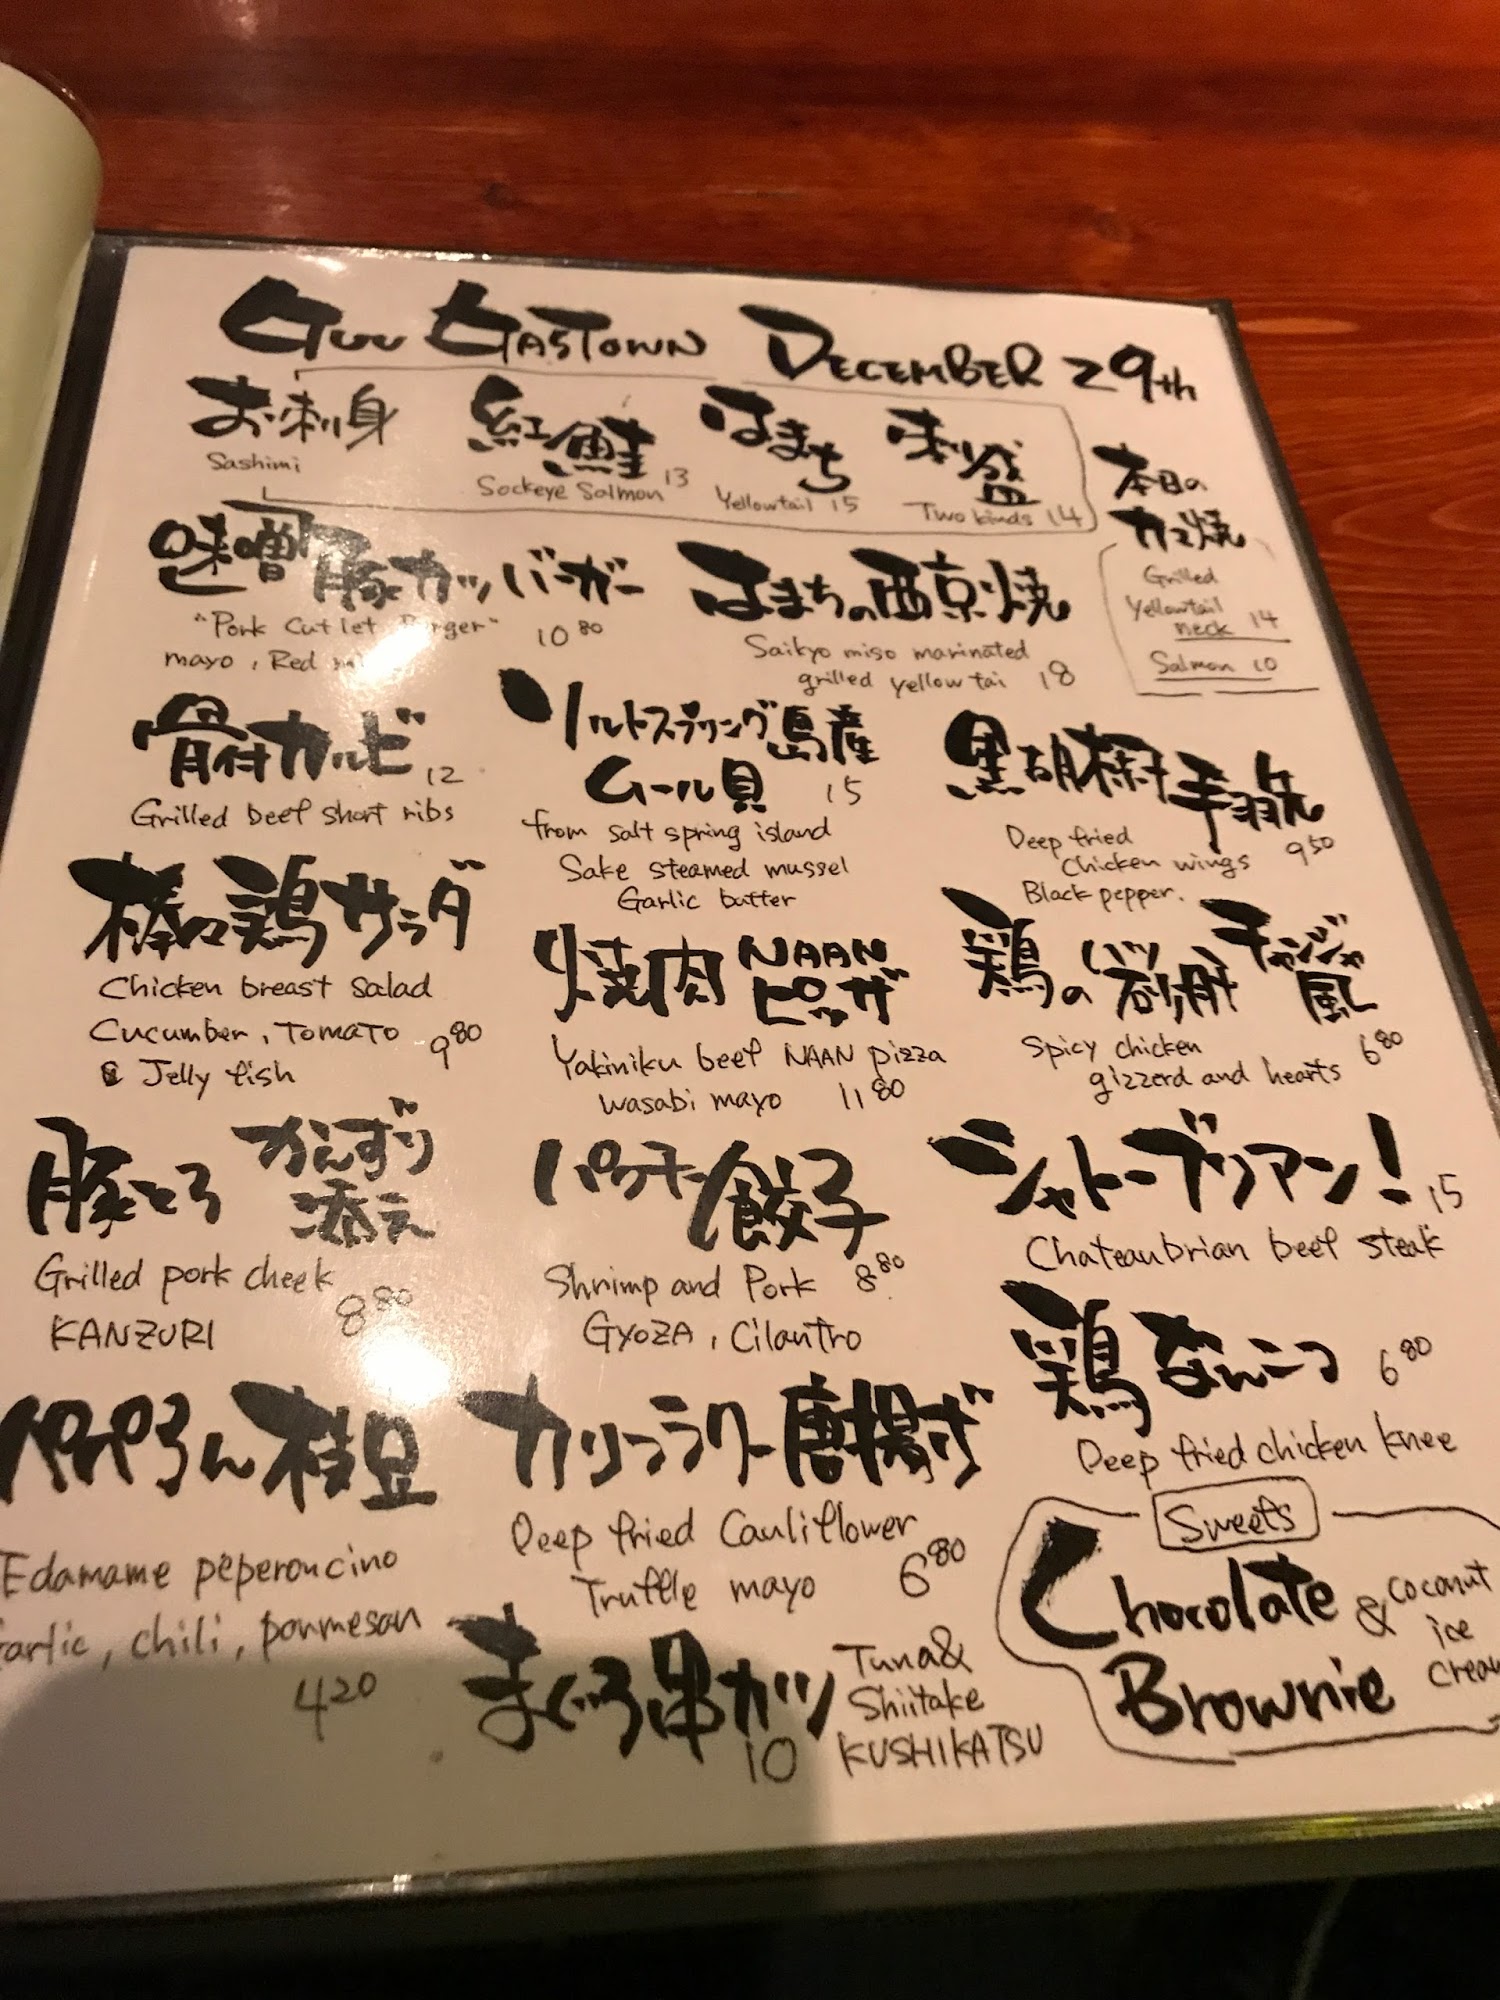 Guu Gastown December 29th
お刺身
Sashimi
紅鮭
Sockeye Salmon 13
はまち
Yellowtail 15
味盛
Two kinds 14
本日の
カマ焼
Grilled
Yellowtail
neck 14
Salmon 10
味噌豚カツバーガー
"Pork Cutlet Burger" 10 80
mayo, Red
はまちの西京焼
Saikyo miso marinated
grilled yellow tai 18
骨付カルビ 12
Grilled beef short ribs
ソルトスプリング島産
ムール貝 15
from salt spring island
Sake steamed mussel
Garlic butter
黒胡椒手羽先
Deep fried
Chicken wings 9 50
Black pepper.
棒々鶏サラダ
Chicken breast salad
Cucumber, Tomato 9 80
& Jelly fish
焼肉 NAAN
ピッザ
Yakiniku beef NAAN pizza
wasabi mayo 11 80
鶏のハツ、砂肝チャンジャ風
Spicy chicken 6 80
gizzerd and hearts
豚とろ かんずり
添え
Grilled pork cheek
KANZURI 8 80
パクチー餃子
Shrimp and Pork 8 80
GYOZA, Cilantro
シャトーブリアン! 15
Chateaubrian beef steak
鶏なんこつ 6 80
Deep fried chicken knee
ペペろん枝豆
Edamame peperoncino
garlic, chili, parmesan
4 20
カリフラワー唐揚げ
Deep fried Cauliflower
Truffle mayo 6 80
まぐろ串カツ
10
Tuna &
Shiitake
KUSHIKATSU
Sweets
Chocolate
Brownie
& coconut
ice
cream